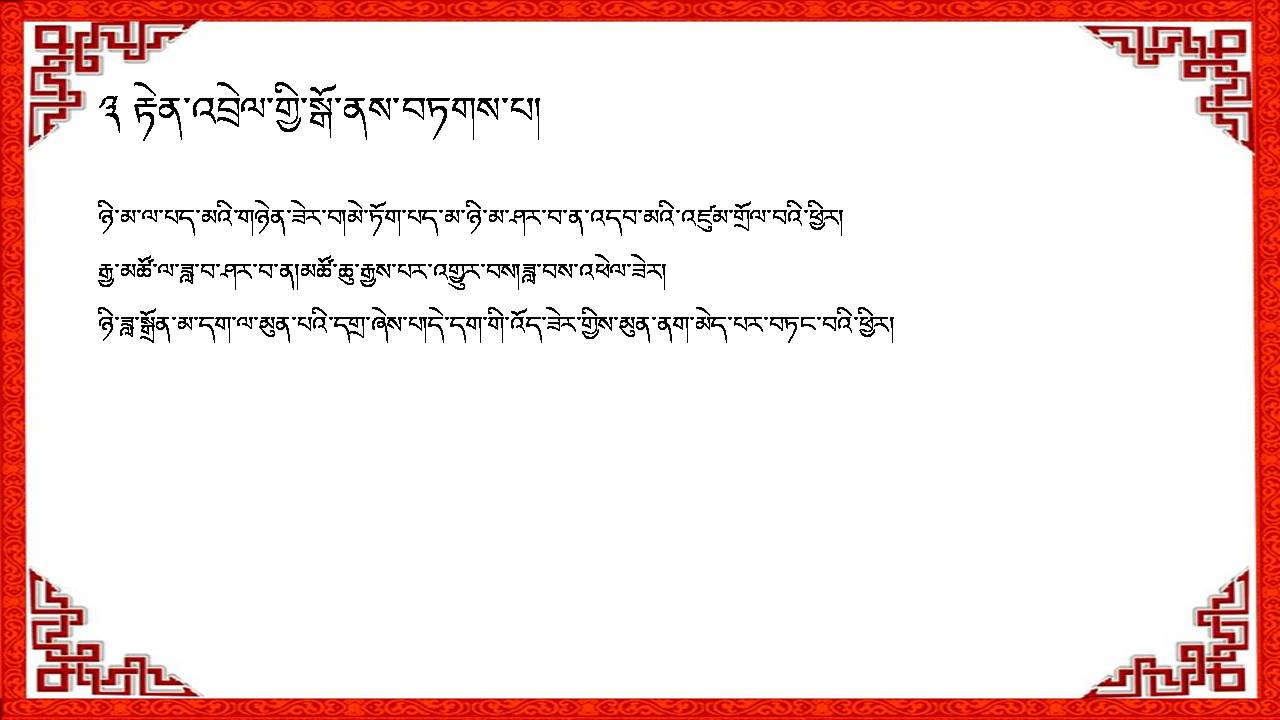 ༣ རྟེན་འབྲེལ་གྱི་སྒོ་ནས་བཏགས་པ།
ཉི་མ་ལ་པད་མའི་གཉེན་ཟེར་བ།མེ་ཏོག་པད་མ་ཉི་མ་ཤར་བ་ན་འདབ་མའི་འཛུམ་གྲོལ་བའི་ཕྱིར།
རྒྱ་མཚོ་ལ་ཟླ་བ་ཤར་བ་ན།མཚོ་ཆུ་རྒྱས་པར་འགྱུར་བས།ཟླ་བས་འཕེལ་ཟེར།
ཉི་ཟླ་སྒྲོན་མ་དག་ལ་མུན་པའི་དགྲ་ཞེས་པ།དེ་དག་གི་འོད་ཟེར་གྱིས་མུན་ནག་མེད་པར་བཏང་བའི་ཕྱིར།